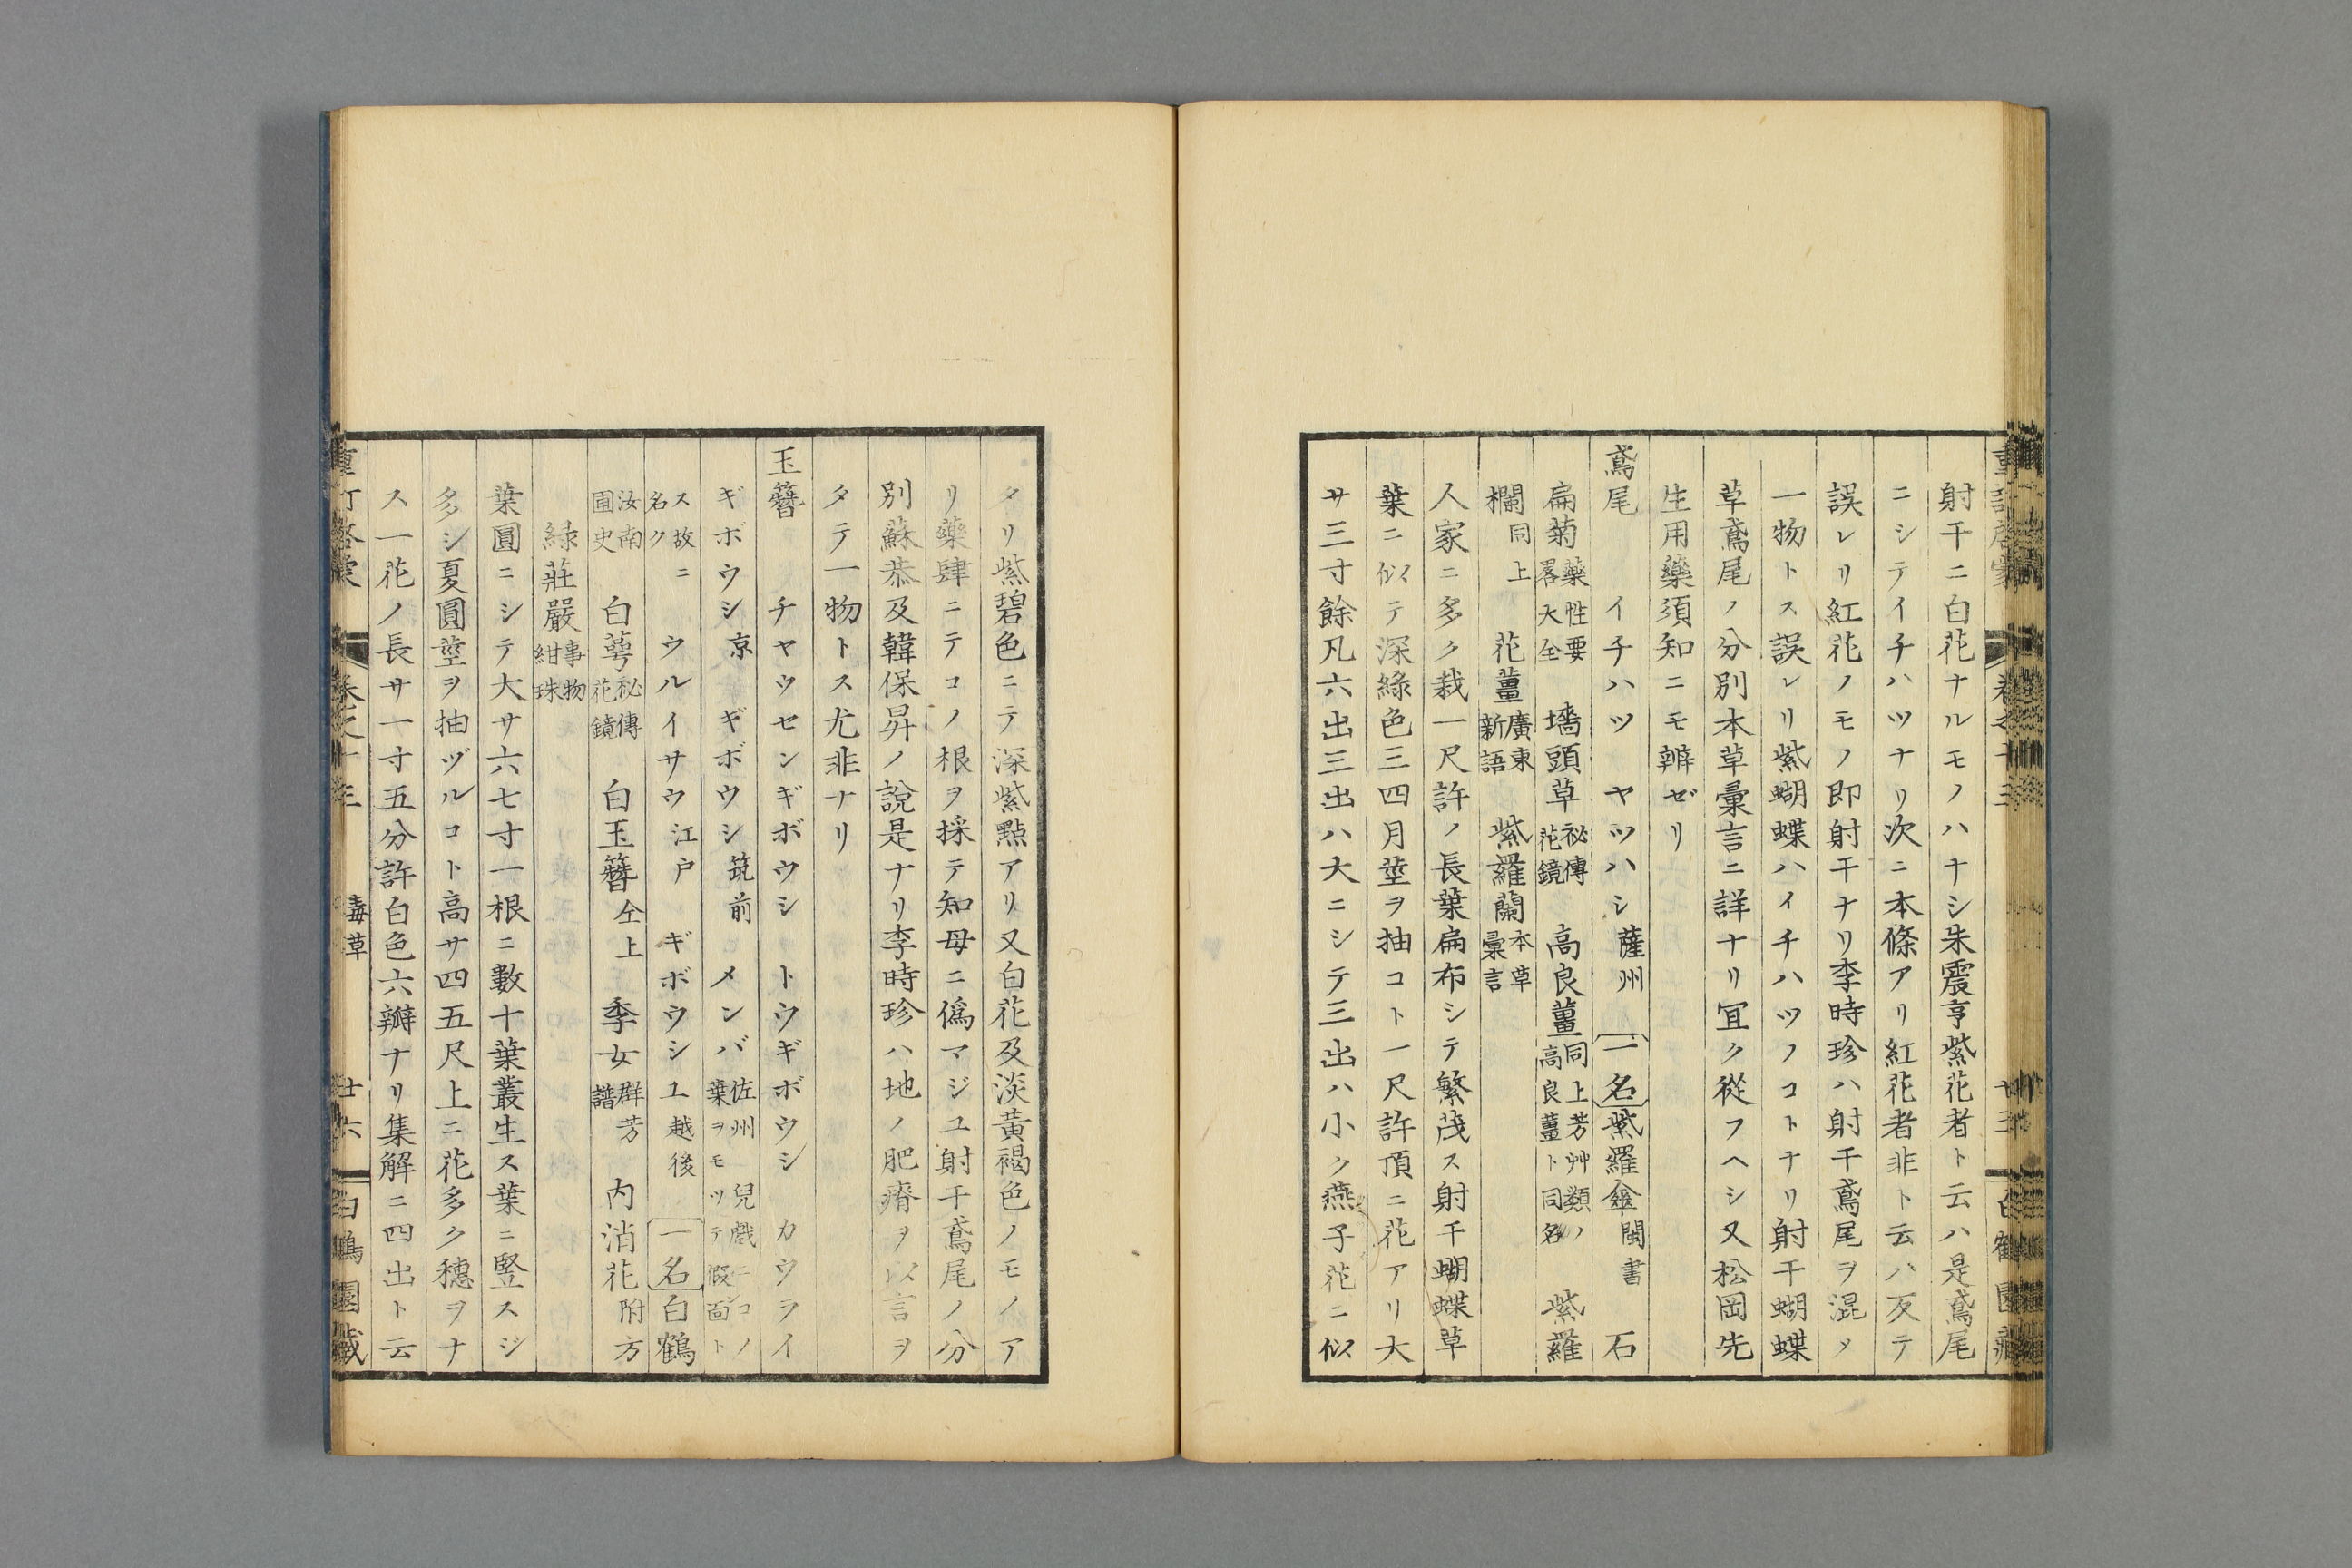 射干ニ白花ナルモノハナシ朱震亨紫花者ト云ハ是鳶尾
ニシテイチハツナリ次ニ本條アリ紅花者非ト云ハ反テ
誤レリ紅花ノモノ即射干ナリ李時珍ハ射干鳶尾ヲ混メ
一物トス誤レリ紫蝴蝶ハイチハツノコトナリ射干蝴蝶
草鳶尾ノ分別本草彙言ニ詳ナリ冝ク從フヘシ又松岡先
生用藥須知ニモ辨ゼリ
鳶尾 イチハツ ヤツハシ薩州 一名紫羅傘閩書 石
扁菊藥性要畧大全 墻頭草祕傳花鏡 高良薑同上芳艸類ノ高良薑ト同名 紫羅
欄同上 花薑廣東新語 紫羅蘭本草彙言
人家ニ多ク栽一尺許ノ長葉扁布シテ繁茂ス射干蝴蝶草
葉ニ似テ深綠色三四月莖ヲ抽コト一尺許頂ニ花アリ大
サ三寸餘凡六出三出ハ大ニシテ三出ハ小ク燕子花ニ似
タリ紫碧色ニテ深紫點アリ又白花及淡黃褐色ノモノア
リ藥肆ニテコノ根ヲ採テ知母ニ僞マジユ射干鳶尾ノ分
別蘇恭及韓保昇ノ說是ナリ李時珍ハ地ノ肥瘠ヲ以言ヲ
タテ一物トス尤非ナリ
玉簪 チヤウセンギボウシ トウギボウシ カウライ
ギボウシ京 ギボウシ筑前 メンバ佐州 兒戲ニコノ葉ヲモツテ假面ト
ス故ニ名ク ウルイサウ江戶 ギボウシユ越後 一名白鶴
汝南圃史 白萼祕傳花鏡 白玉簪仝上 季女群芳譜 內消花附方
綠莊嚴事物紺珠
葉圓ニシテ大サ六七寸一根ニ數十葉叢生ス葉ニ竪スジ
多シ夏圓莖ヲ抽ヅルコト高サ四五尺上ニ花多ク穗ヲナ
ス一花ノ長サ一寸五分許白色六瓣ナリ集解ニ四出ト云
毒草
廿六